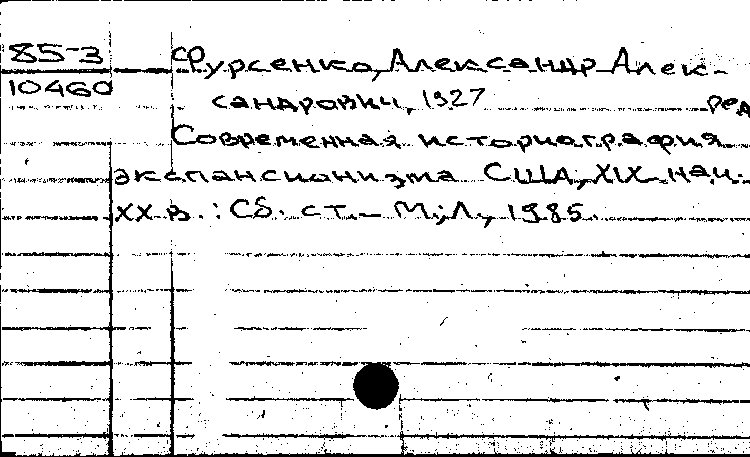 85-3 Фурсенко, Александр Алек-
10460 сандрович, 1927 ред
Современная историография
экспансионизма США, XIX-нач.
XX в. : Сб. ст. - М.; Л., 1985.